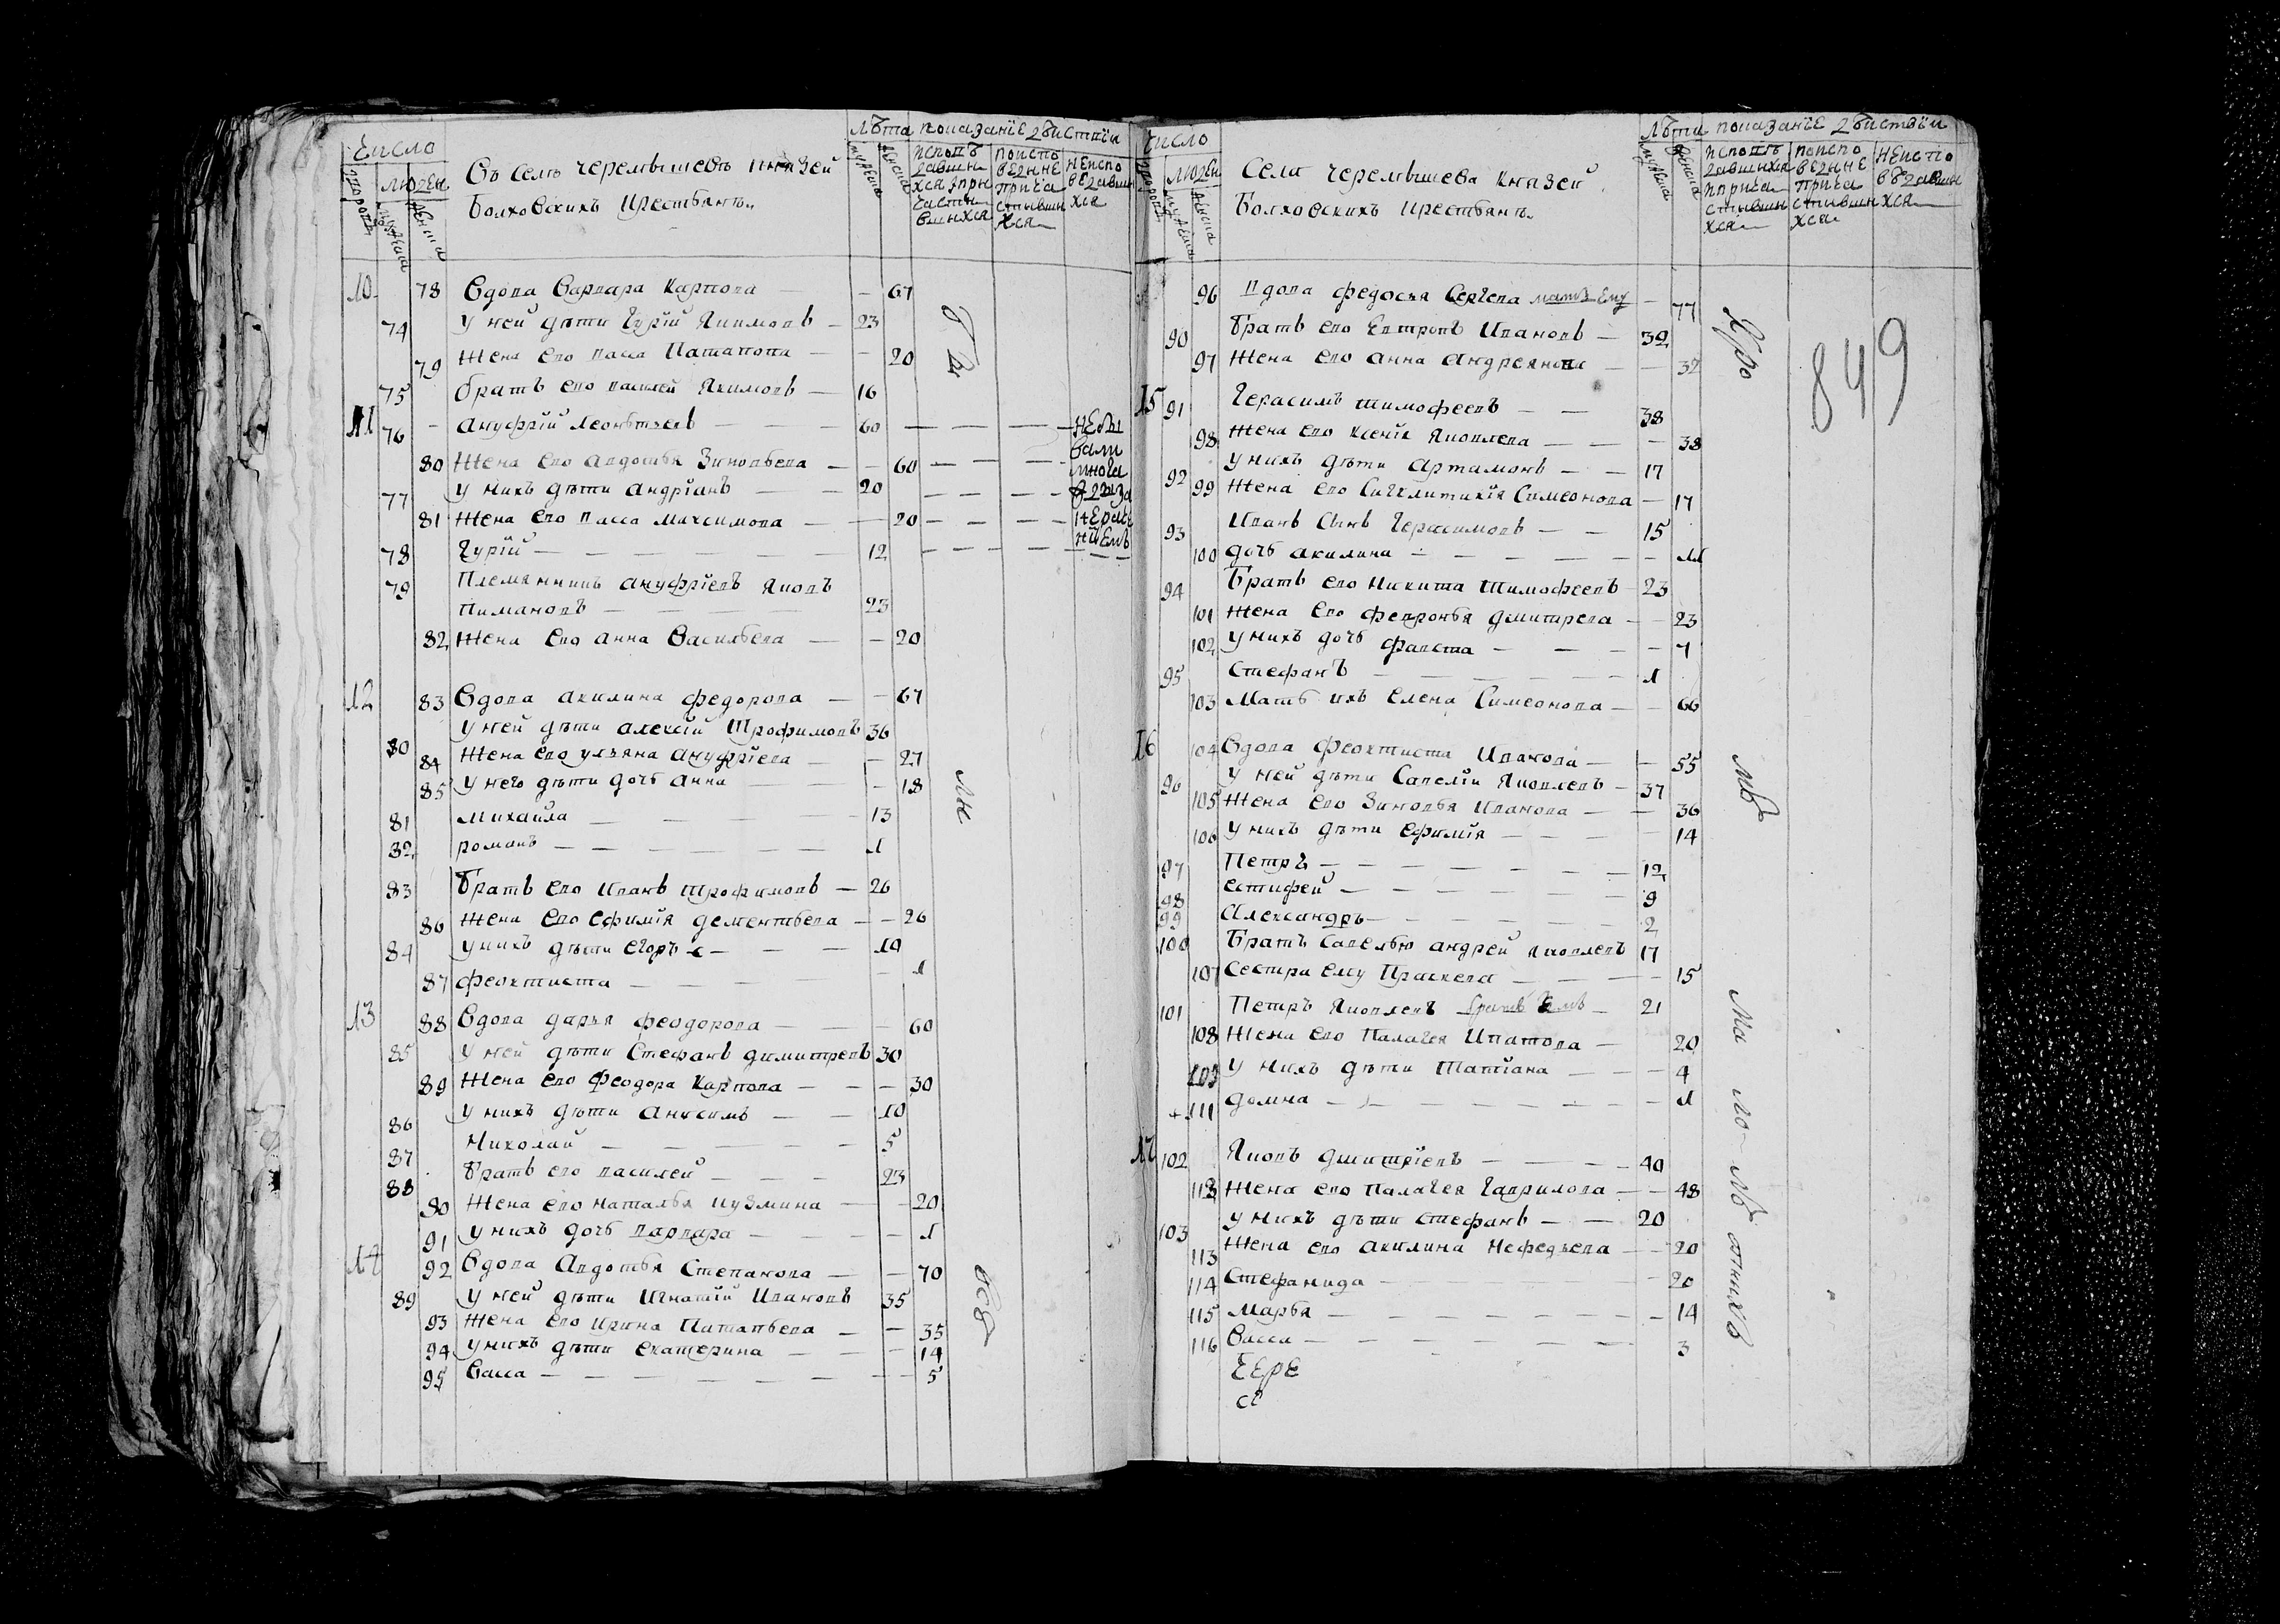 Число
Въ селѣ черемышевѣ князей
Болховскихъ крестьянъ
лѣта
показанїе действїи
людеи
10 78 Вдова Варвара Карпова — 67
74 У ней дѣти Гурїй Якимовъ — 23
79 Жена его васса Патапова — 20
75 братъ его василей Якимовъ — 16
11 76 Ануфрїй Леонтьевъ — 60
80 Жена его авдотья Зиновьева — 60
77 У нихъ дѣти андрїанъ — 20
81 Жена его васса Максимова — 20
78 Гурїй — 12
79 Племянникъ ануфрїевъ Яковъ
Пимановъ — 23
82 Жена его анна Васильева — 20
12 83 Вдова акилина федорова — 67
80 У ней дѣти алексїй Трофимовъ 36
84 Жена его ульяна ануфрїева — 27
85 У него дѣти дочь анна — 18
81 Михайла — 13
82 романъ — 1
83 Братъ его иванъ трофимовъ — 26
86 Жена его ефимїя дементьева — 26
84 У нихъ дѣти егоръ — 10
87 феоктиста — 1
13 88 Вдова дарья феодорова — 60
85 У ней дѣти Стефанъ димитревъ 30
89 Жена его феодора Карпова — 30
86 У нихъ дѣти анисимъ — 10
87 Николай — 5
88 Братъ его василей — 23
90 Жена его наталья кузмина — 20
91 У нихъ дочь варвара — 1
14 92 Вдова Авдотья Степанова — 70
89 У ней дѣти Игнатїй Ивановъ 35
93 Жена его ирина Патапьева — 35
94 У нихъ дѣти екатерина — 14
95 Васса — 5
Число
Села черемышева князей
Болховскихъ крестьянъ
лѣта
показанїе действїи
людеи
96 вдова федосья Сергева мать ему — 77
90 братъ его Евтропъ Ивановъ — 32
97 Жена его анна андреянова — 32
849
15 91 Герасимъ тимофеевъ — 38
98 Жена его ксенїя Яковлева — 38
92 У нихъ дѣти артамонъ — 17
99 Жена его Сигклитикїя Симеонова — 17
93 Иванъ Сынъ Герасимовъ — 15
100 дочь акилина — 11
94 Братъ его никита Тимофеевъ 23
101 Жена его февронья дмитрева — 23
102 У нихъ дочь фавста — 7
95 Стефанъ — 1
103 Мать ихъ елена Симеонова — 66
16 104 Вдова феоктиста Иванова — 55
96 У ней дѣти Савелїй Яковлевъ — 37
105 Жена его Зиновья Иванова — 36
106 У нихъ дѣти ефимїя — 14
97 Петръ — 12
98 естифей — 9
99 Александръ — 2
100 Братъ Савелью андрей яковлевъ 17
107 Сестра ему Праскева — 15
101 Петръ Яковлевъ братъ — 21
108 Жена его Палагея Ипатова — 20
109 У нихъ дѣти Татїана — 4
111 домна — 1
17 102 Яковъ дмитрїевъ — 40
112 Жена его Палагея Гаврилова — 48
103 У нихъ дѣти стефанъ — 20
113 Жена его акилина Нефедьева — 20
114 Стефанида — 20
115 Марья — 14
116 Васса — 3